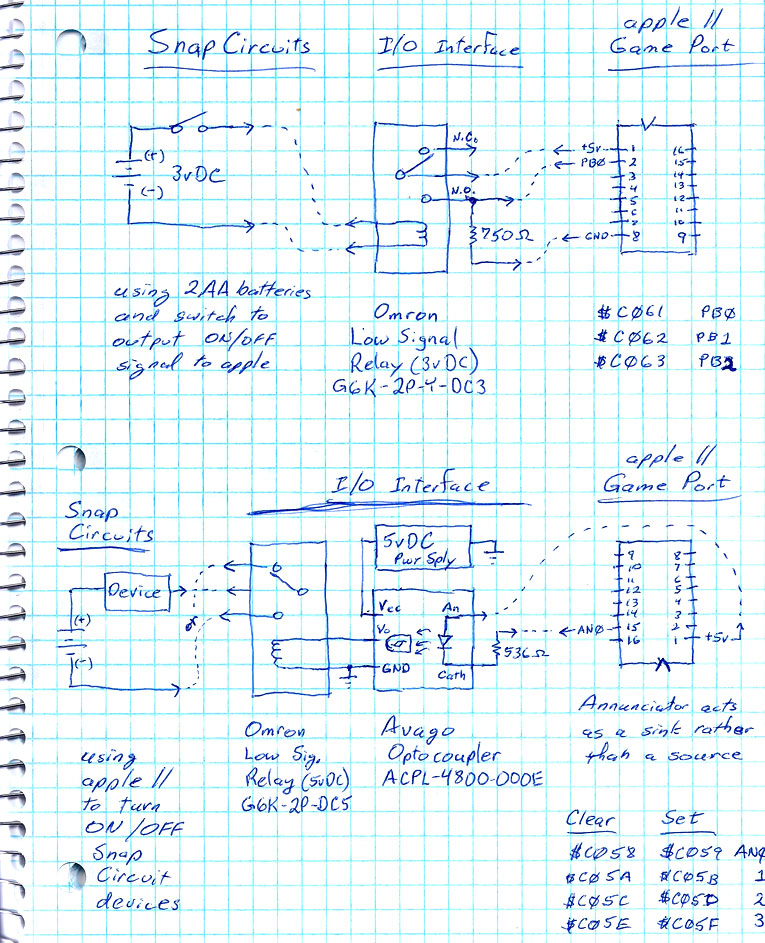 Snap Circuits
I/O Interface
apple //
Game Port
(+)
3vDC
(-)
N.C.
N.O.
750Ω
+5v
PBØ
GND
1 16
2 15
3 14
4 13
5 12
6 11
7 10
8 9
using 2AA batteries
and switch to
output ON/OFF
signal to apple
Omron
Low Signal
Relay (3vDC)
G6K-2P-Y-DC3
$CØ61 PBØ
$CØ62 PB1
$CØ63 PB2
Snap
Circuits
I/O Interface
apple //
Game Port
Device
(+)
(-)
5vDC
Pwr Sply
Vcc
An
Vo
GND
Cath
536Ω
ANØ
9 8
10 7
11 6
12 5
13 4
14 3
15 2
16 1
+5v
using
apple //
to turn
ON/OFF
Snap
Circuit
devices
Omron
Low Sig.
Relay (5vDC)
G6K-2P-DC5
Avago
Optocoupler
ACPL-4800-000E
Annunciator acts
as a sink rather
than a source
Clear Set
$CØ58 $CØ59 ANØ
$CØ5A $CØ5B 1
$CØ5C $CØ5D 2
$CØ5E $CØ5F 3